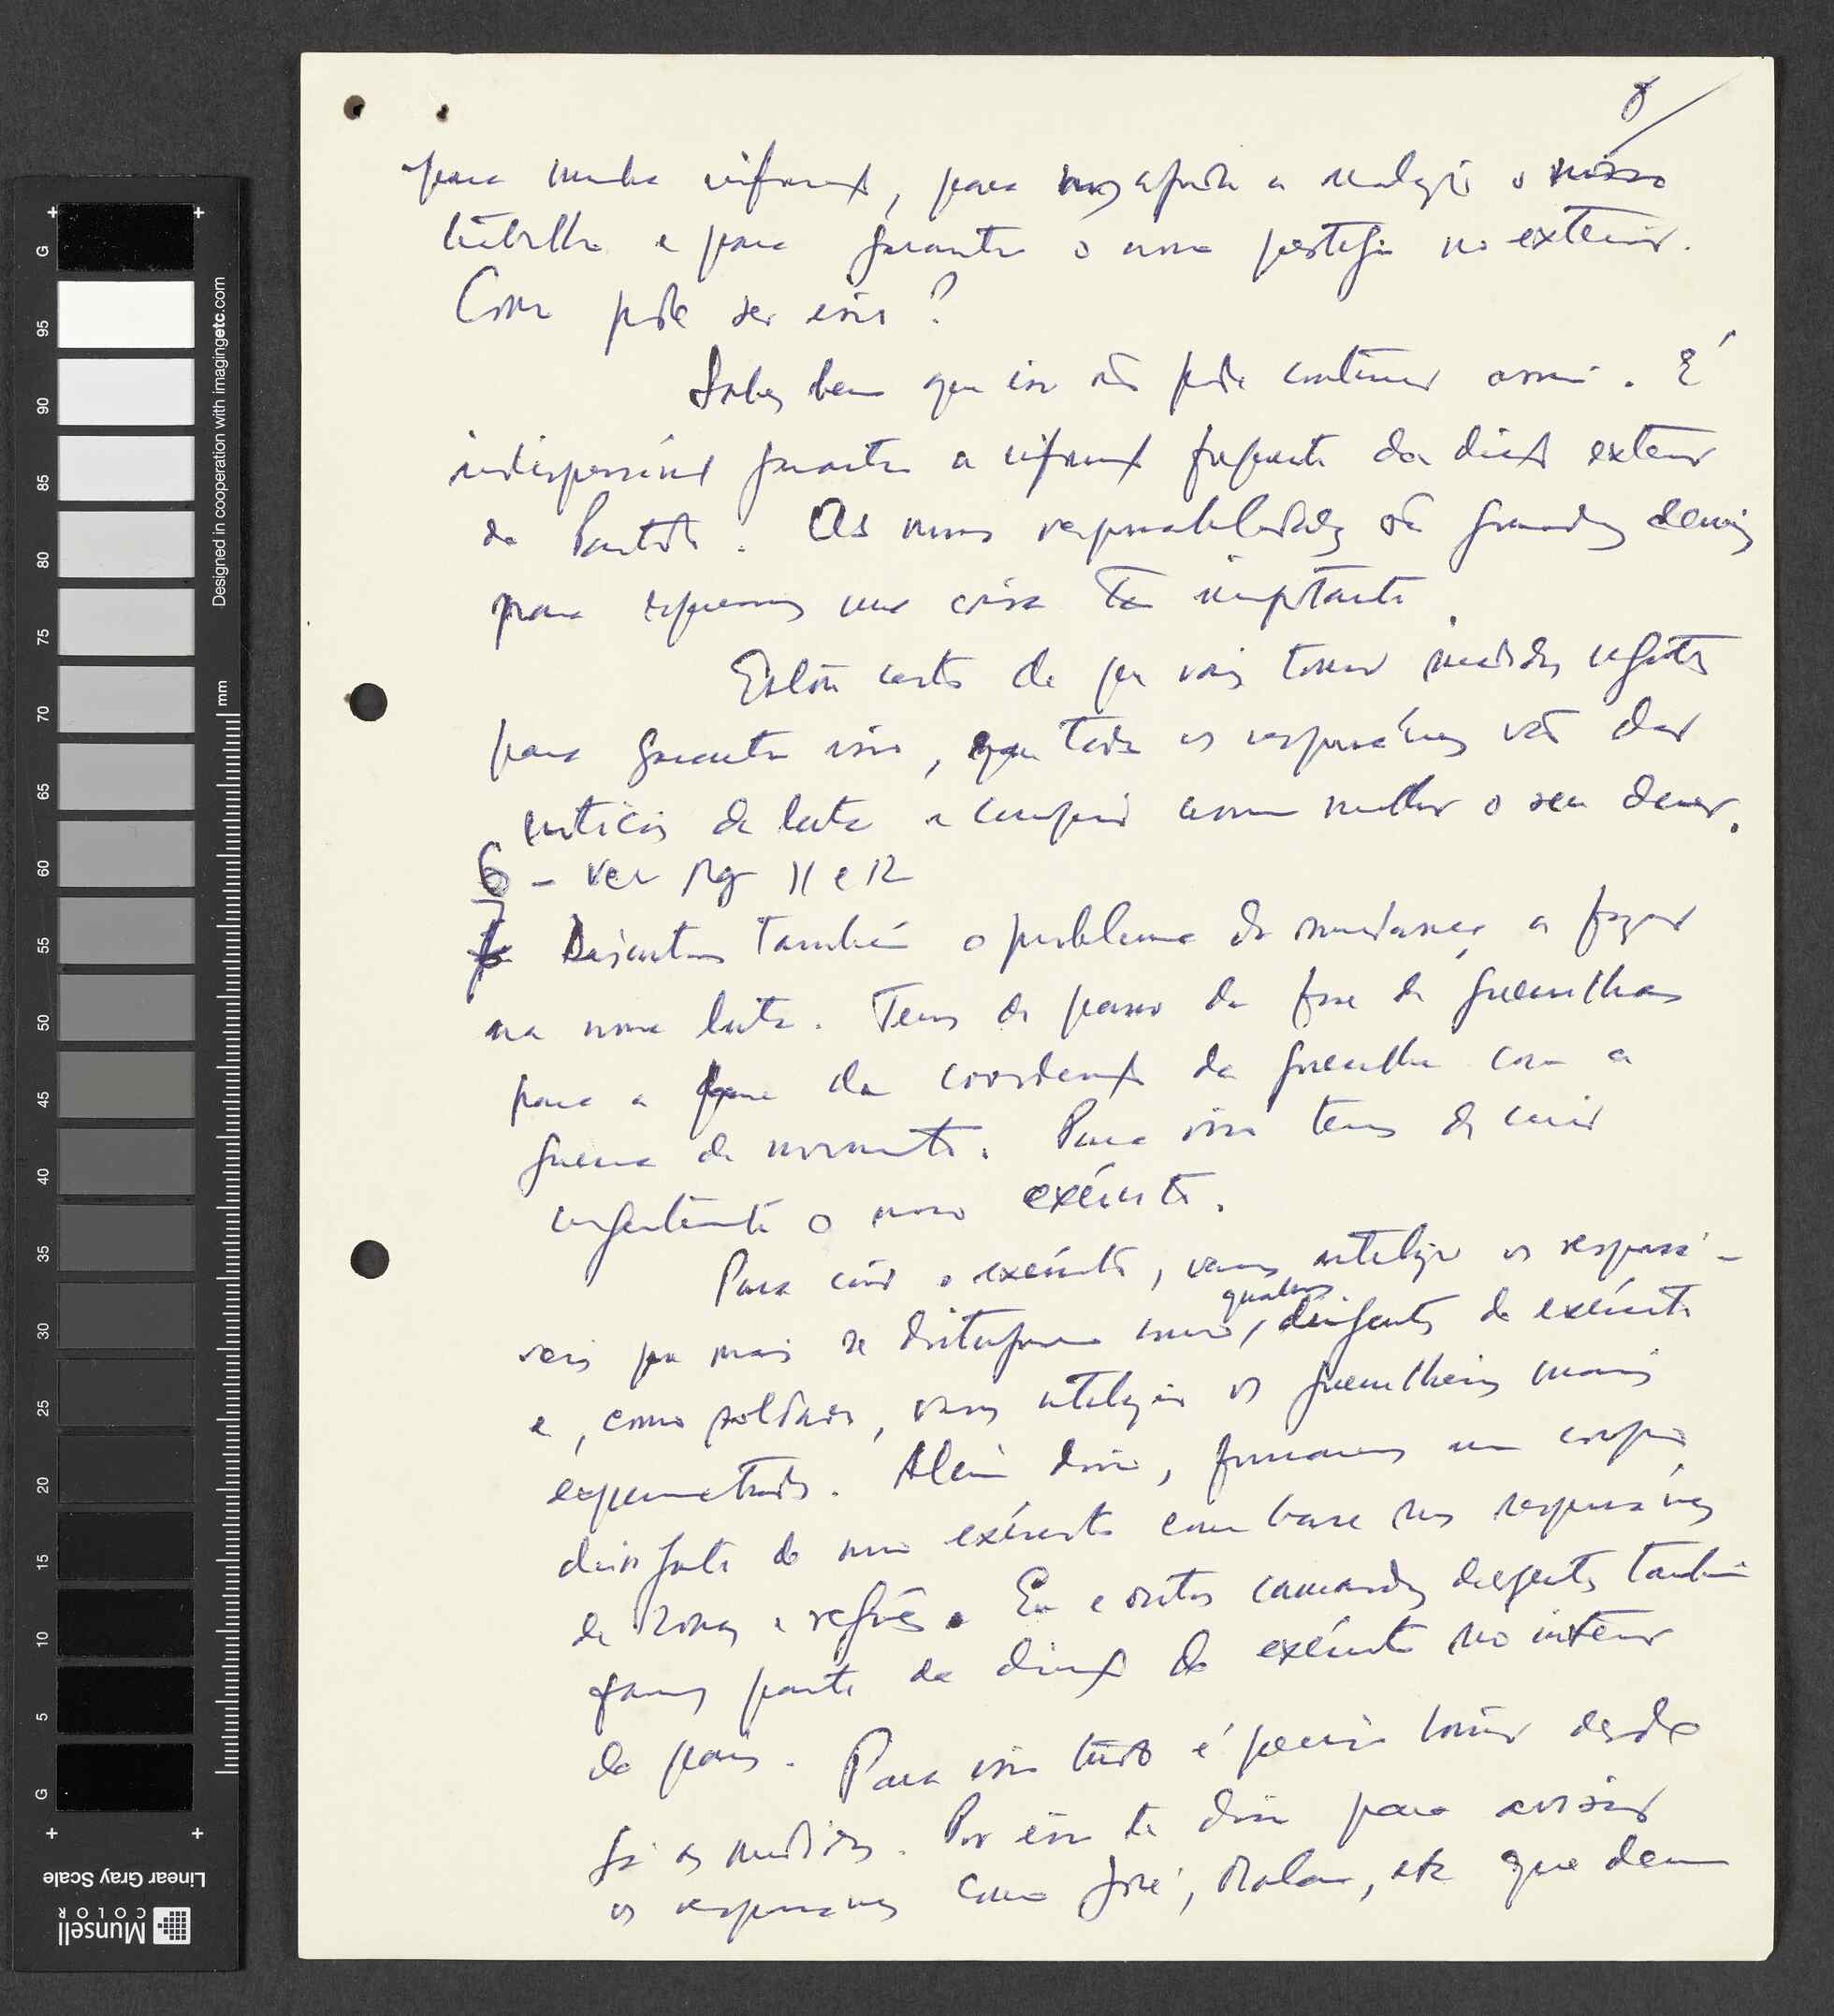 8/
para minha informação, para nos ajudar a realizar o nosso
trabalho e para garantir o nosso prestígio no exterior.
Como pode ser isso?
Sabes bem que isso não pode continuar assim. É
indispensável garantir a informação frequente da direção exterior
do Partido. As nossas responsabilidades são grandes demais
para esquecermos uma coisa tão importante.
Estou certo de que vais tomar medidas urgentes
para garantir isso, que todos os responsáveis vão dar
notícias da luta e cumprir assim melhor o seu dever.
6 - ver pag 11 e 12
7 Discutimos também o problema da mudança a fazer
na nossa luta. Temos de passar da fase de guerrilhas
para a fase da coordenação da guerrilha com a
guerra de movimento. Para isso temos de criar
urgentemente o nosso exército.
Para criar o exército, vamos utilizar os responsá-
veis que mais se distinguiram como quadros dirigentes do exército
e, como soldados, vamos utilizar os guerrilheiros mais
experimentados. Além disso, formaremos um corpo
dirigente do nosso exército com base nos responsáveis
de zonas e regiões. Eu e outros camaradas dirigentes também
faremos parte da direção do exército no interior
do país. Para isso tudo é preciso tomar desde
já as medidas. Por isso te disse para avisar
os responsáveis como José, Malan, etc que devem
G 95 90 85 80 75 70 65 60 55 50 45 40 35 30 25 20 15 10 5 G
mm
Designed in cooperation with imagingetc.com
Linear Gray Scale
Munsell
COLOR